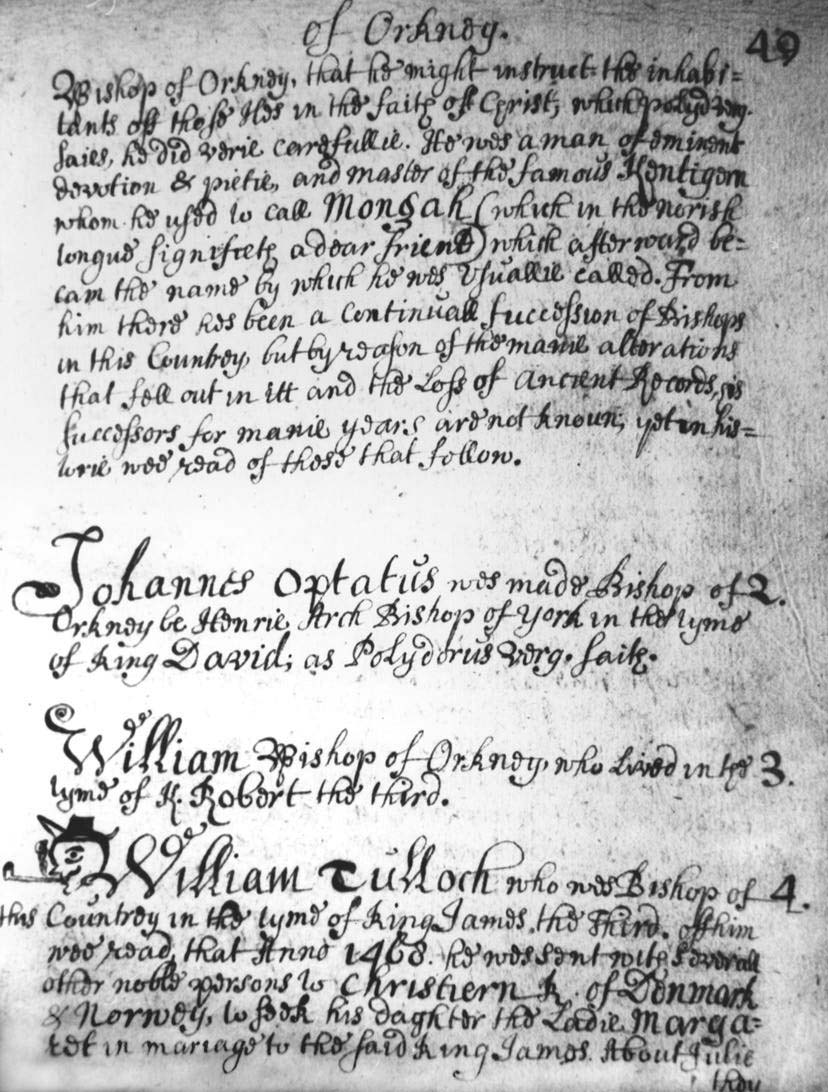 of Orkney.
49
Bishop of Orkney, that he might instruct the inhabi=
tants off those Iles in the faith off Christ; which polyd verg.
saies, he did verie carefullie. He wes a man of eminent
devotion & pietie, and master of the famous Kentigern
whom he used to call Mongah (which in the norish
tongue signifieth a dear friend) which afterward be=
cam the name by which he wes Usuallie called. From
him there hes been a Continuall succession of Bishops
in this Countrey, but by reason of the manie alterations
that fell out in itt and the Loss of Ancient Records, his
successors for manie years are not knoun; yet in his=
torie wee read of these that follow.
Johannes Optatus wes made Bishop of 2.
Orkney be Henrie Arch Bishop of York in the tyme
of King David; as Polydorus Verg. saith.
William Bishop of Orkney, who Lived in the 3.
tyme of K. Robert the third.
William Tulloch who wes Bishop of 4.
this Countrey in the tyme of King James the Third. off him
wee read, that Anno 1468. he wes sent with severall
other noble persons to Christiern K. of Denmark
& Norwey, to seek his daghter the Ladie Marga=
ret in mariage to the said King James. About Julie
they